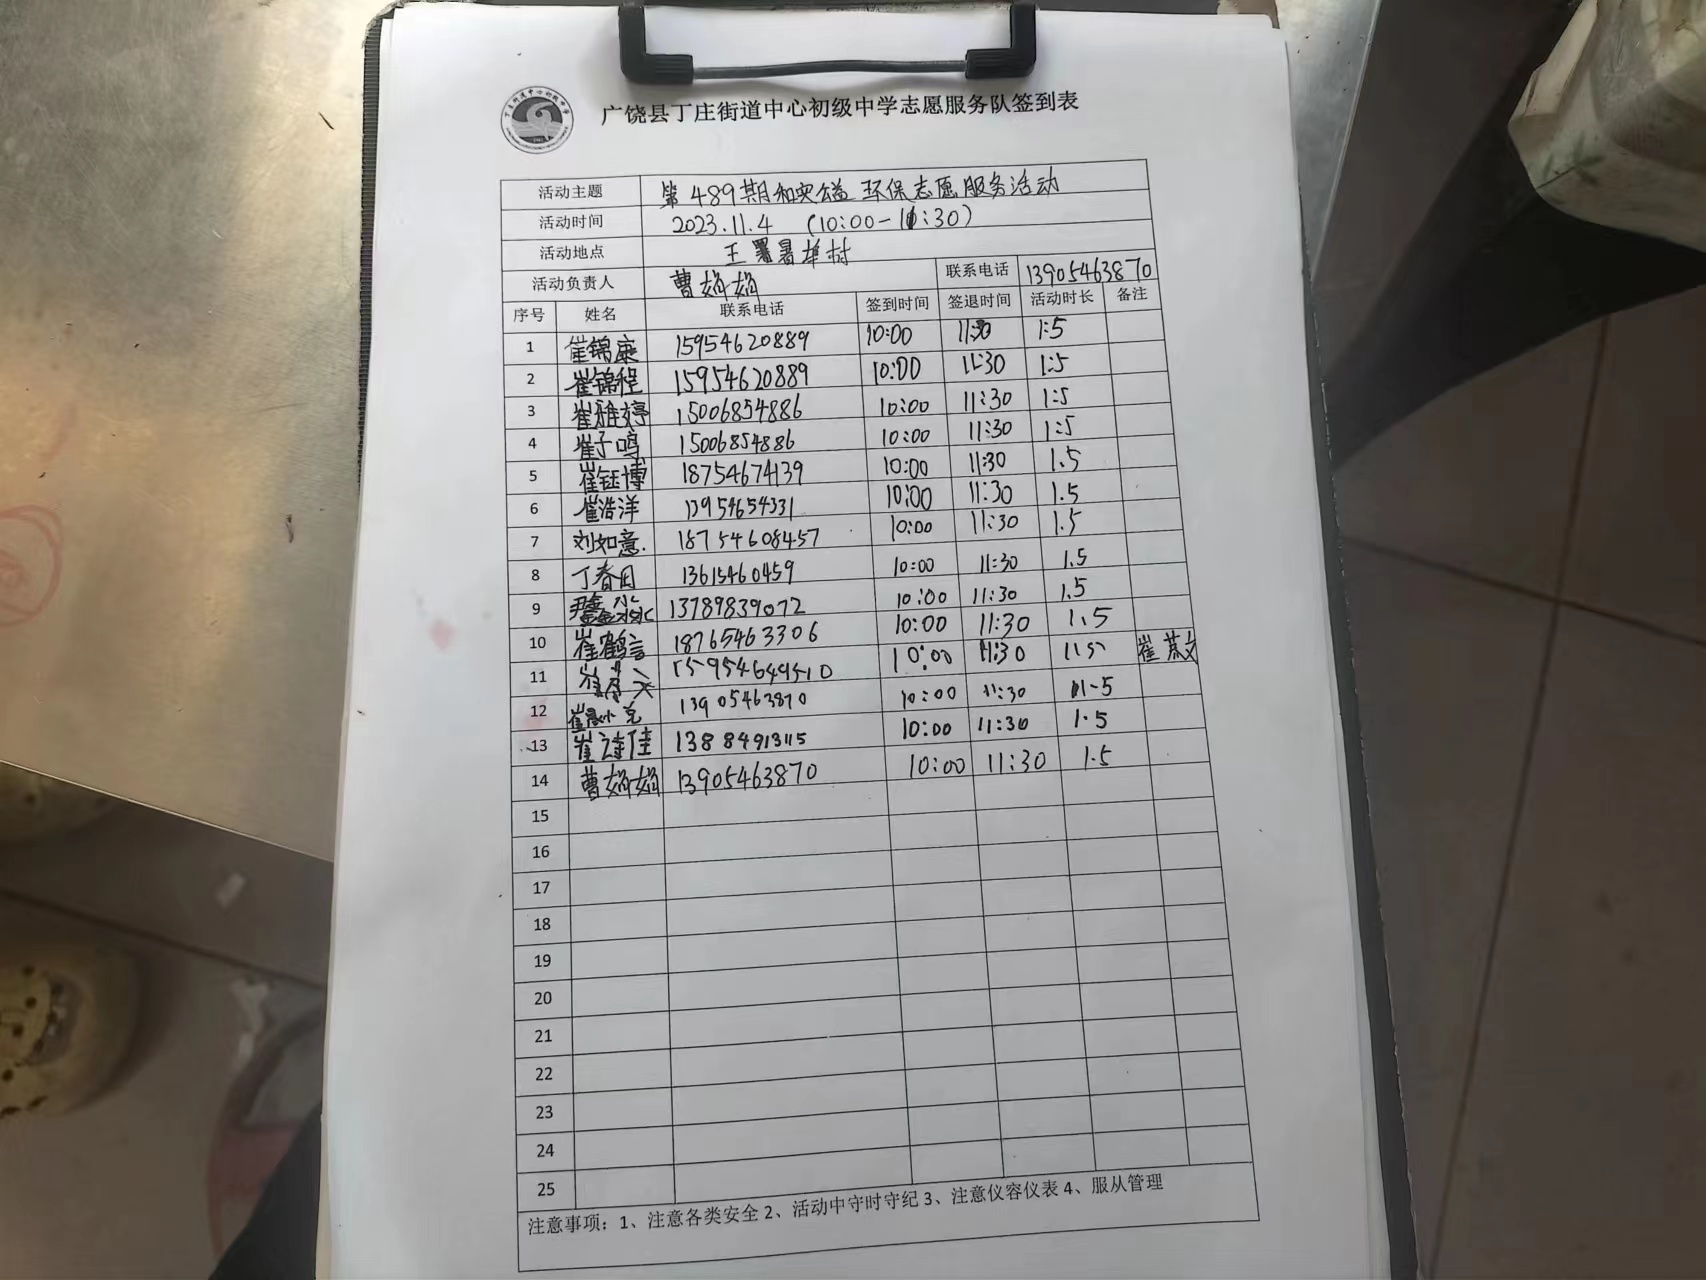 广饶县丁庄街道中心初级中学志愿服务队签到表
活动主题 第489期和实公益环保志愿服务活动
活动时间 2023.11.4 (10:00-11:30)
活动地点 王署埠村
活动负责人 曹娟娟 联系电话 13905463870
序号 姓名 联系电话 签到时间 签退时间 活动时长 备注
1 崔锦康 15954620889 10:00 11:30 1:5
2 崔锦程 15954620889 10:00 11:30 1:5
3 崔雅婷 15006854886 10:00 11:30 1:5
4 崔子鸣 15006854886 10:00 11:30 1:5
5 崔钰博 18754674139 10:00 11:30 1.5
6 崔浩洋 13954654331 10:00 11:30 1.5
7 刘如意. 18754608457 10:00 11:30 1.5
8 丁春月 13615460459 10:00 11:30 1.5
9 尹鑫淼 13789839072 10:00 11:30 1.5
10 崔鹤言 18765463306 10:00 11:30 1.5
11 15954649510 10:00 11:30 1.5 崔燕文
12 13905463870 10:00 11:30 1.5
13 崔诗佳 13884913115 10:00 11:30 1.5
14 曹娟娟 13905463870 10:00 11:30 1.5
15
16
17
18
19
20
21
22
23
24
25
注意事项：1、注意各类安全 2、活动中守时守纪 3、注意仪容仪表 4、服从管理